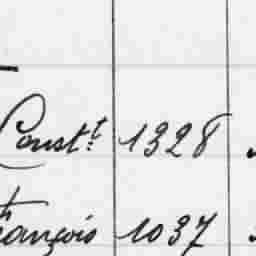 Const.t 1328
françois 1037